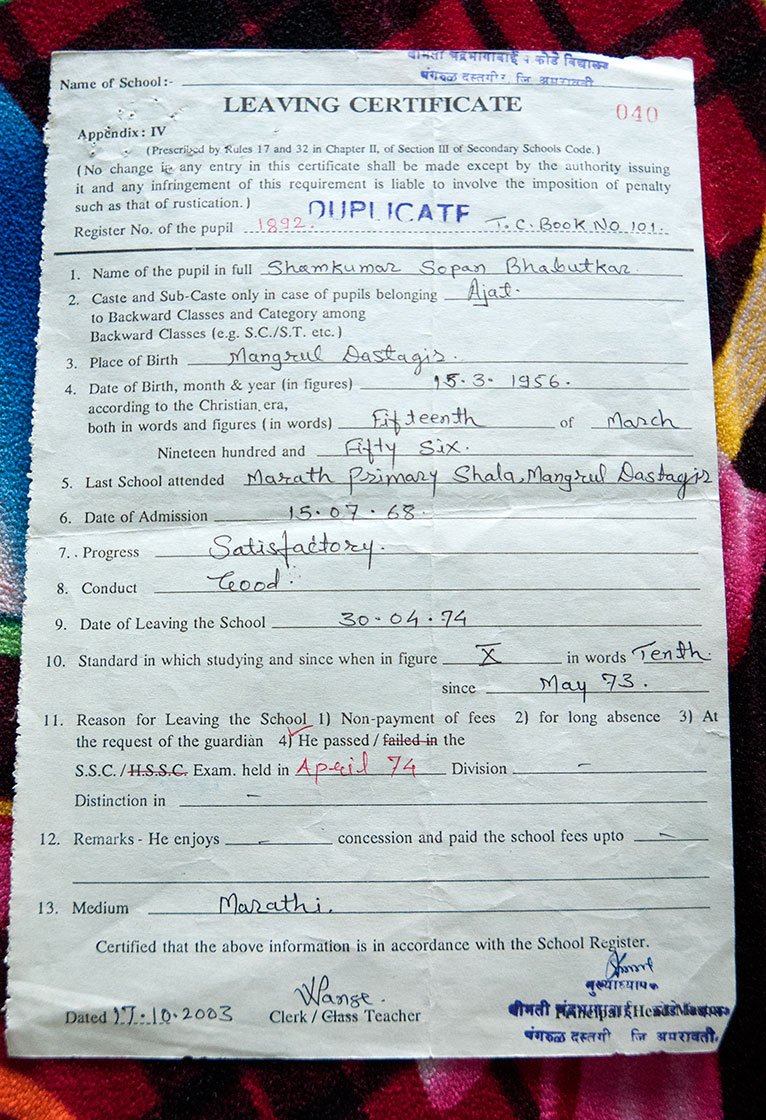 श्रीमती चंद्रभागाबाई र कोडे विद्यालय
Name of School:-
मंगरुळ दस्तगीर, जि अमरावती
LEAVING CERTIFICATE
040
Appendix: IV
(Prescribed by Rules 17 and 32 in Chapter II, of Section III of Secondary Schools Code.)
(No change in any entry in this certificate shall be made except by the authority issuing
it and any infringement of this requirement is liable to involve the imposition of penalty
such as that of rustication.) DUPLICATE
Register No. of the pupil 1892. T.C. Book No 101.
1. Name of the pupil in full Shamkumar Sopan Bhabutkar.
2. Caste and Sub-Caste only in case of pupils belonging Ajat.
to Backward Classes and Category among
Backward Classes (e.g. S.C./S.T. etc.)
3. Place of Birth Mangrul Dastagir.
4. Date of Birth, month & year (in figures) 15.3.1956.
according to the Christian era,
both in words and figures (in words) Fifteenth of March
Nineteen hundred and Fifty Six.
5. Last School attended Marath Primary Shala, Mangrul Dastagir
6. Date of Admission 15.07.68.
7. Progress Satisfactory.
8. Conduct Good.
9. Date of Leaving the School 30.04.74
10. Standard in which studying and since when in figure X in words Tenth.
since May 73.
11. Reason for Leaving the School 1) Non-payment of fees 2) for long absence 3) At
the request of the guardian 4) He passed / failed in the
S.S.C./H.S.S.C. Exam. held in April 74 Division -
Distinction in -
12. Remarks - He enjoys - concession and paid the school fees upto -
13. Medium Marathi.
Certified that the above information is in accordance with the School Register.
मुख्याध्यापक
Dated 17.10.2003 Clerk / Class Teacher Principal / Head Master
मंगरुळ दस्तगी जि अमरावती.